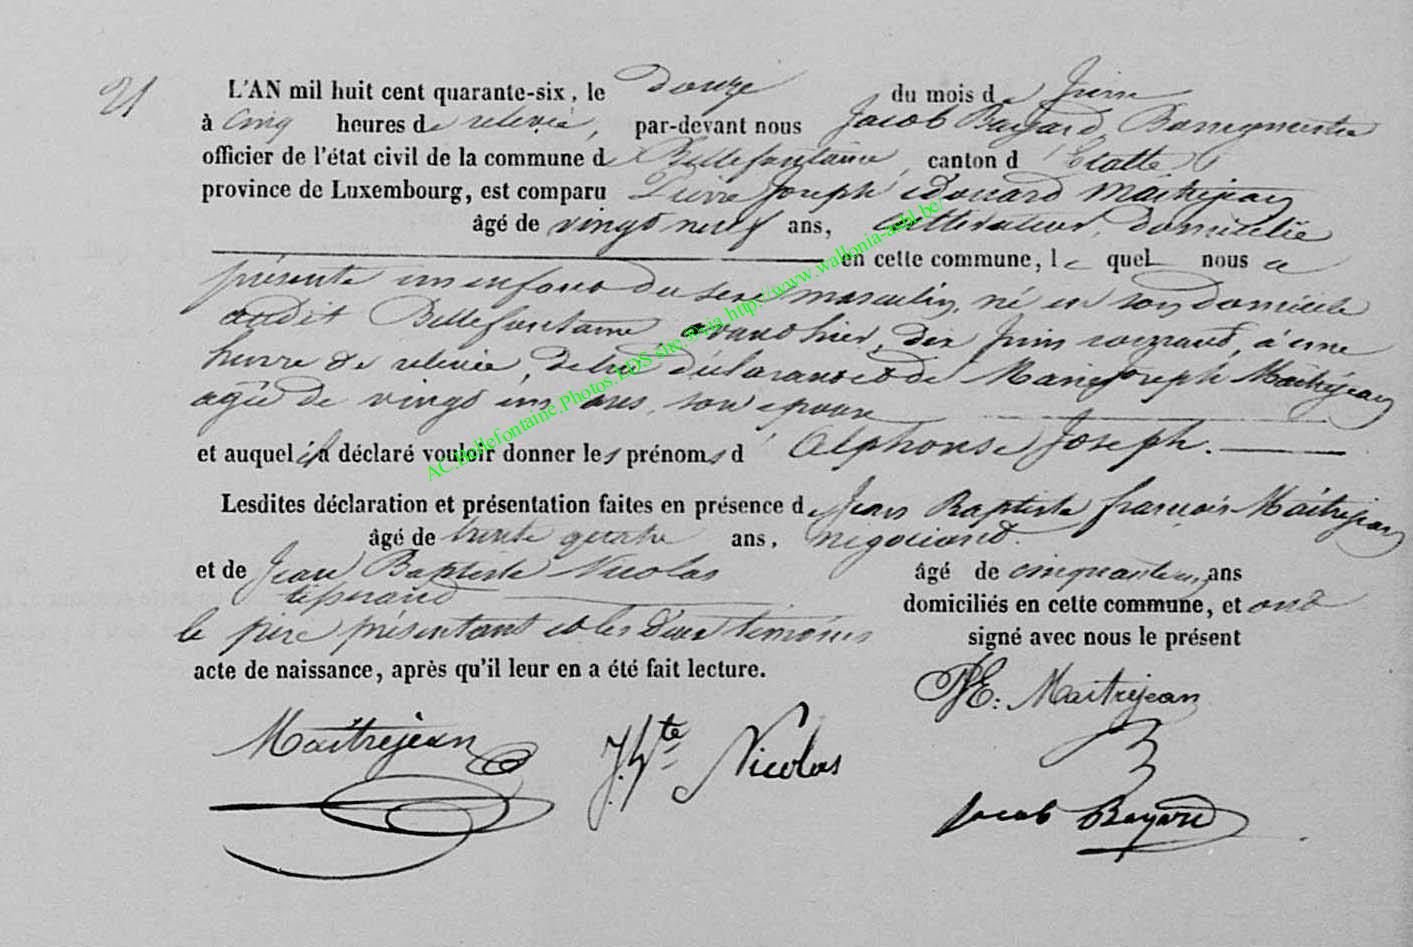 21
L'AN mil huit cent quarante-six, le Douze du mois de Juin
à Cinq heures de relevée, par-devant nous Jacob Bayard, Bourgmestre
officier de l'état civil de la commune de Bellefontaine, canton d'Etalle
province de Luxembourg, est comparu Pierre Joseph Edouard Maitrejean
âgé de vingt neuf ans, Cultivateur, domicilié
en cette commune, le quel nous a
présenté un enfant du sexe masculin, né en son domicile
audit Bellefontaine, avant hier, dix Juin courant, à une
heure de relevée, de lui déclarant et de Marie Joseph Maitrejean
agée de vingt un ans, son épouse
et auquel il a déclaré vouloir donner les prénoms d'Alphonse Joseph.
Lesdites déclaration et présentation faites en présence de Jean Baptiste françois Maitrejean
âgé de trente quatre ans, négociant.
et de Jean Baptiste Nicolas âgé de cinquante un ans
tisserand domiciliés en cette commune, et ont
le père présentant et les deux témoins signé avec nous le présent
acte de naissance, après qu'il leur en a été fait lecture.
PJE. Maitrejean
Maitrejean J. Bte Nicolas
Jacob Bayard
AC.Bellefontaine.Photos.LDS site.fr via http://www.wallonia-asbl.be/